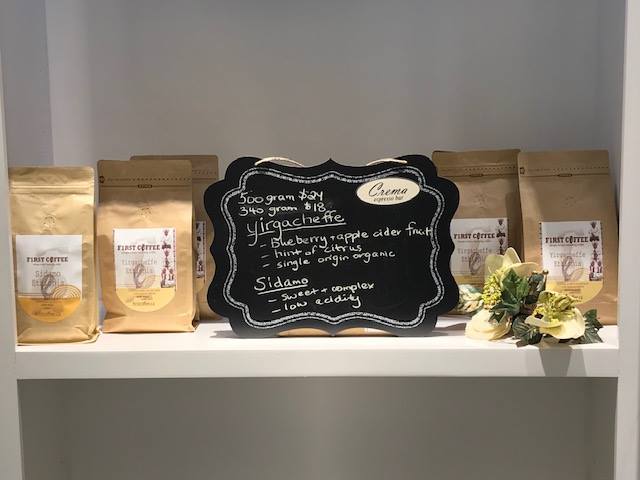 500 gram $24
340 gram $18
Crema
espresso bar
Yirgacheffe
- Blueberry + apple cider fruit
- hint of citrus
- single origin organic
Sidamo
- sweet + complex
- low acidity
FIRST COFFEE
Sidamo
FIRST COFFEE
Yirgacheffe
Ethiopia
FIRST COFFEE
Yirgacheffe
FIRST COFFEE
Yirgacheffe
Ethiopia